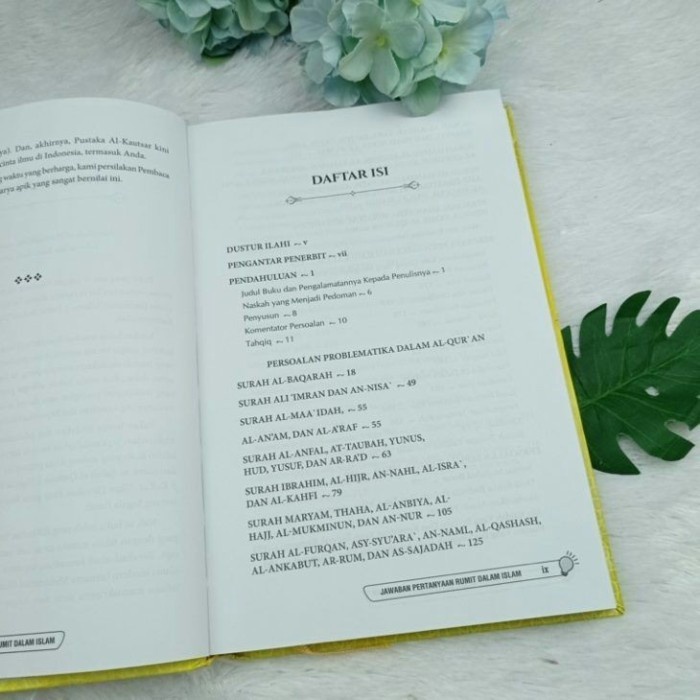 ya). Dan, akhirnya, Pustaka Al-Kautsar kini
cinta ilmu di Indonesia, termasuk Anda.
waktu yang berharga, kami persilakan Pembaca
arya apik yang sangat bernilai ini.
RUMIT DALAM ISLAM
DAFTAR ISI
DUSTUR ILAHI ~ v
PENGANTAR PENERBIT ~ vii
PENDAHULUAN ~ 1
Judul Buku dan Pengalamatannya Kepada Penulisnya ~ 1
Naskah yang Menjadi Pedoman ~ 6
Penyusun ~ 8
Komentator Persoalan ~ 10
Tahqiq ~ 11
PERSOALAN PROBLEMATIKA DALAM AL-QUR`AN
SURAH AL-BAQARAH ~ 18
SURAH ALI 'IMRAN DAN AN-NISA` ~ 49
SURAH AL-MAA`IDAH, ~ 55
AL-AN'AM, DAN AL-A'RAF ~ 55
SURAH AL-ANFAL, AT-TAUBAH, YUNUS,
HUD, YUSUF, DAN AR-RA'D ~ 63
SURAH IBRAHIM, AL-HIJR, AN-NAHL, AL-ISRA`,
DAN AL-KAHFI ~ 79
SURAH MARYAM, THAHA, AL-ANBIYA, AL-
HAJJ, AL-MUKMINUN, DAN AN-NUR ~ 105
SURAH AL-FURQAN, ASY-SYU'ARA`, AN-NAML, AL-QASHASH,
AL-ANKABUT, AR-RUM, DAN AS-SAJADAH ~ 125
JAWABAN PERTANYAAN RUMIT DALAM ISLAM ix